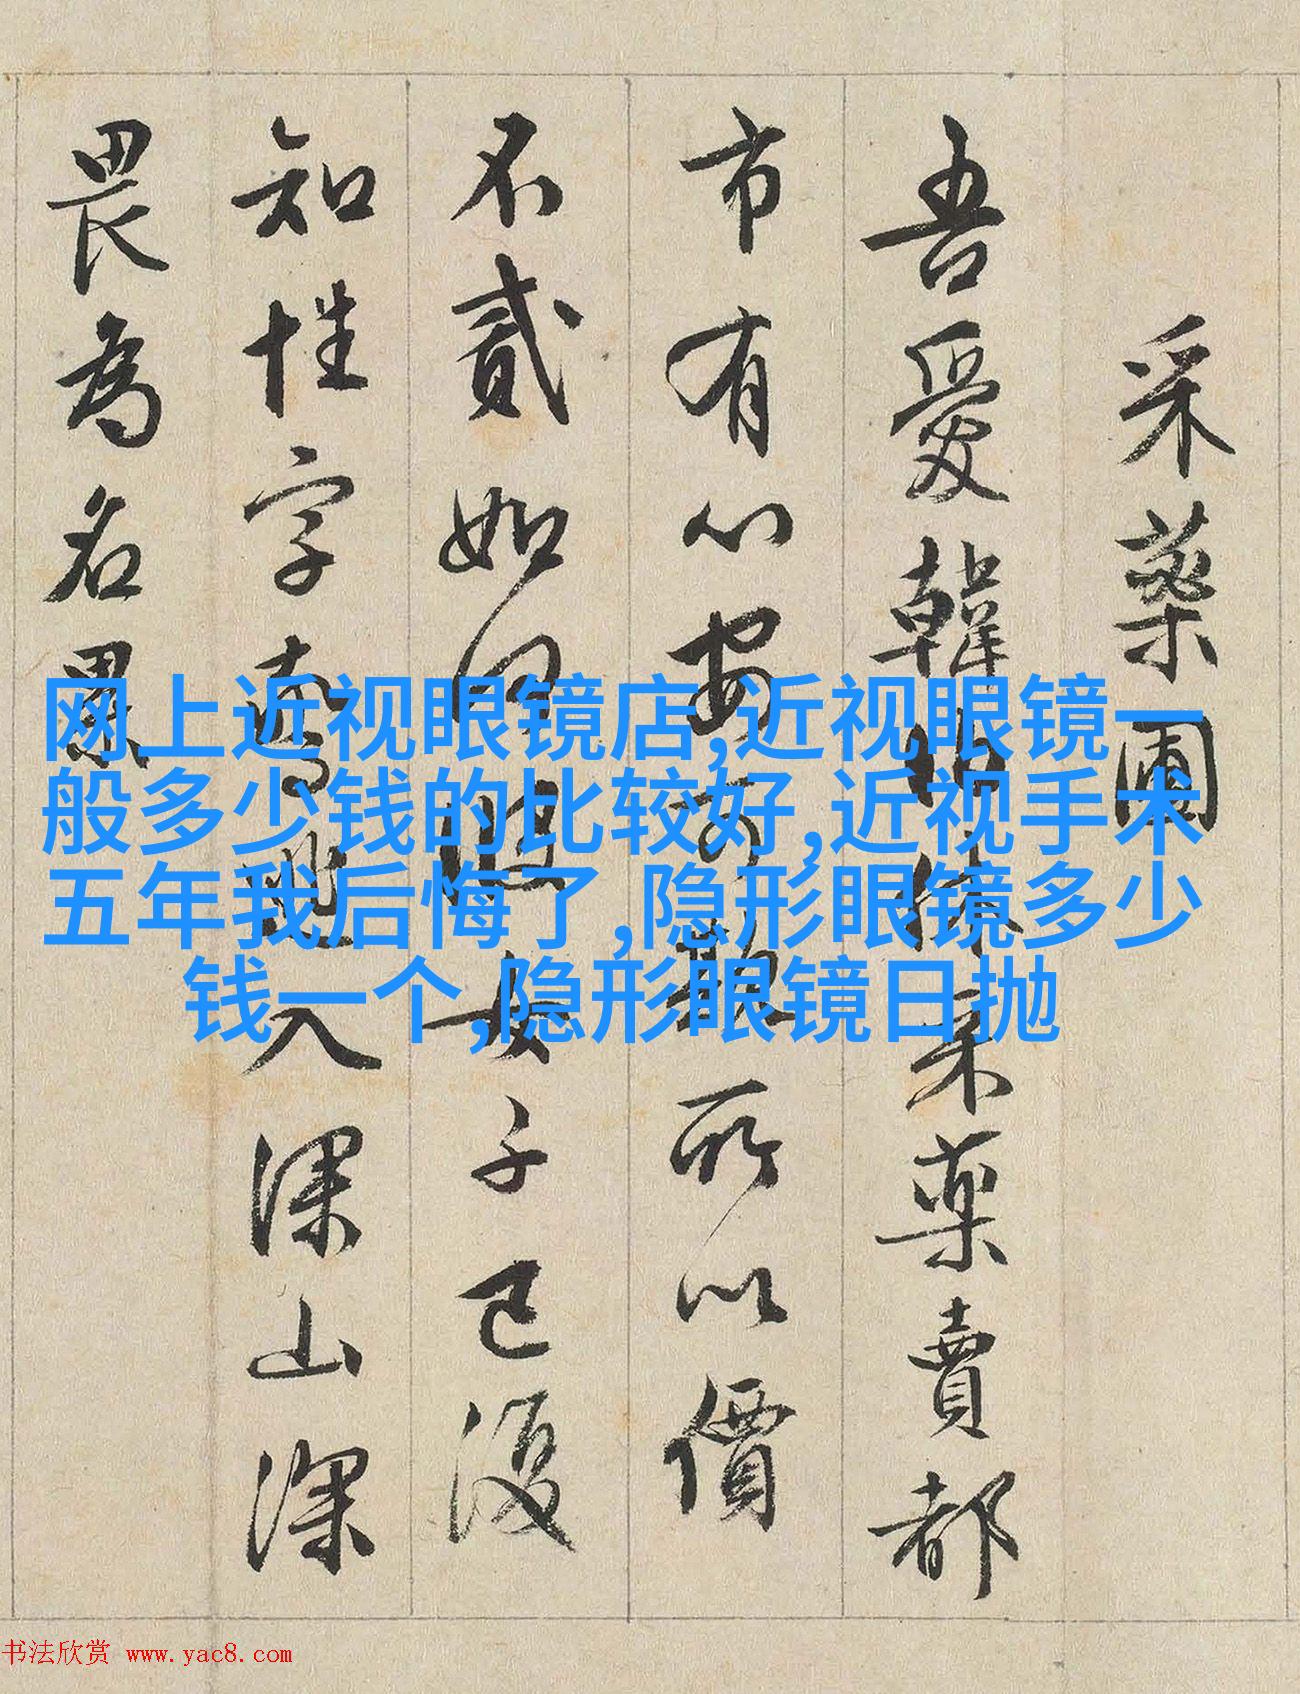 采藥圃
吾愛韓伯休采藥賣都
市有心安可欺所以價
不貳如何彼女子已復
知性字驚逃入深山深
畏為名累
网上近视眼镜店,近视眼镜一
般多少钱的比较好,近视手术
五年我后悔了,隐形眼镜多少
钱一个,隐形眼镜日抛
书法欣赏 www.yac8.com